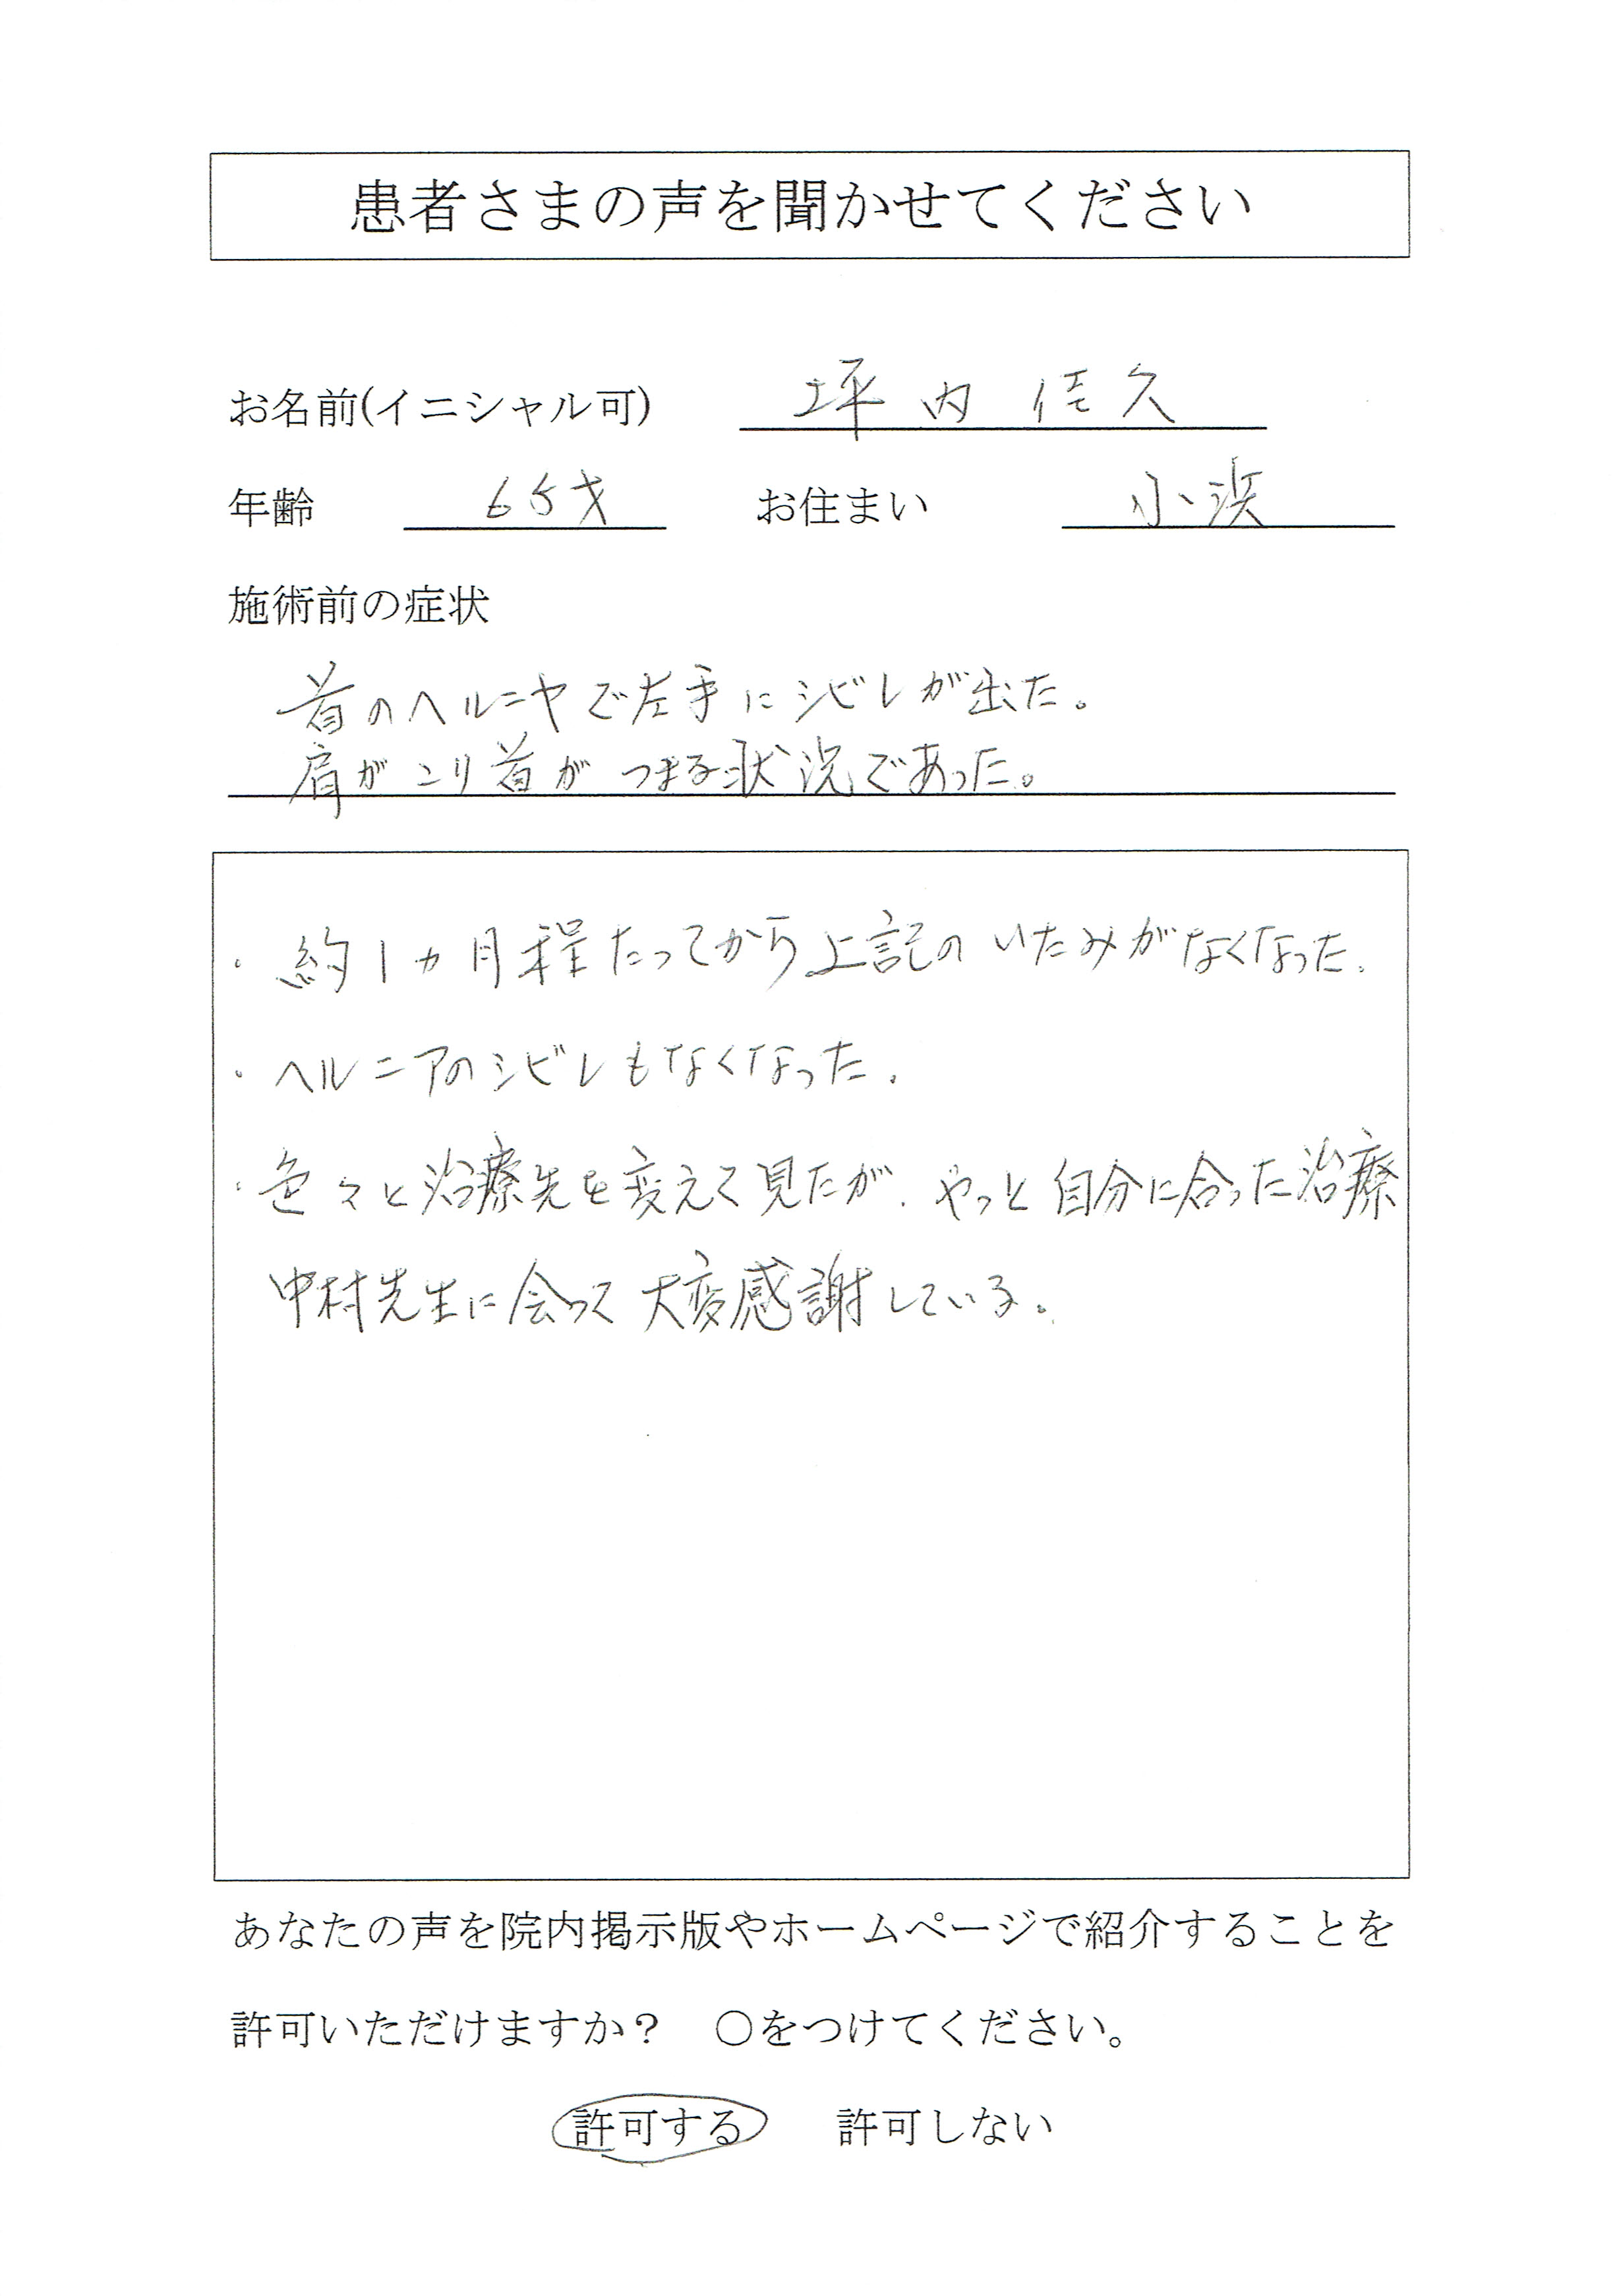 患者さまの声を聞かせてください
お名前(イニシャル可) 坪内佳久
年齢 65才 お住まい 小浜
施術前の症状
首のヘルニヤで左手にシビレが出た。
肩がこり首がつまる状況であった。
・約1ヵ月程たってから上記のいたみがなくなった.
・ヘルニアのシビレもなくなった.
・色々と治療先を変えて見たが.やっと自分に合った治療
中村先生に会って大変感謝している。
あなたの声を院内掲示版やホームページで紹介することを
許可いただけますか? ○をつけてください。
許可する 許可しない